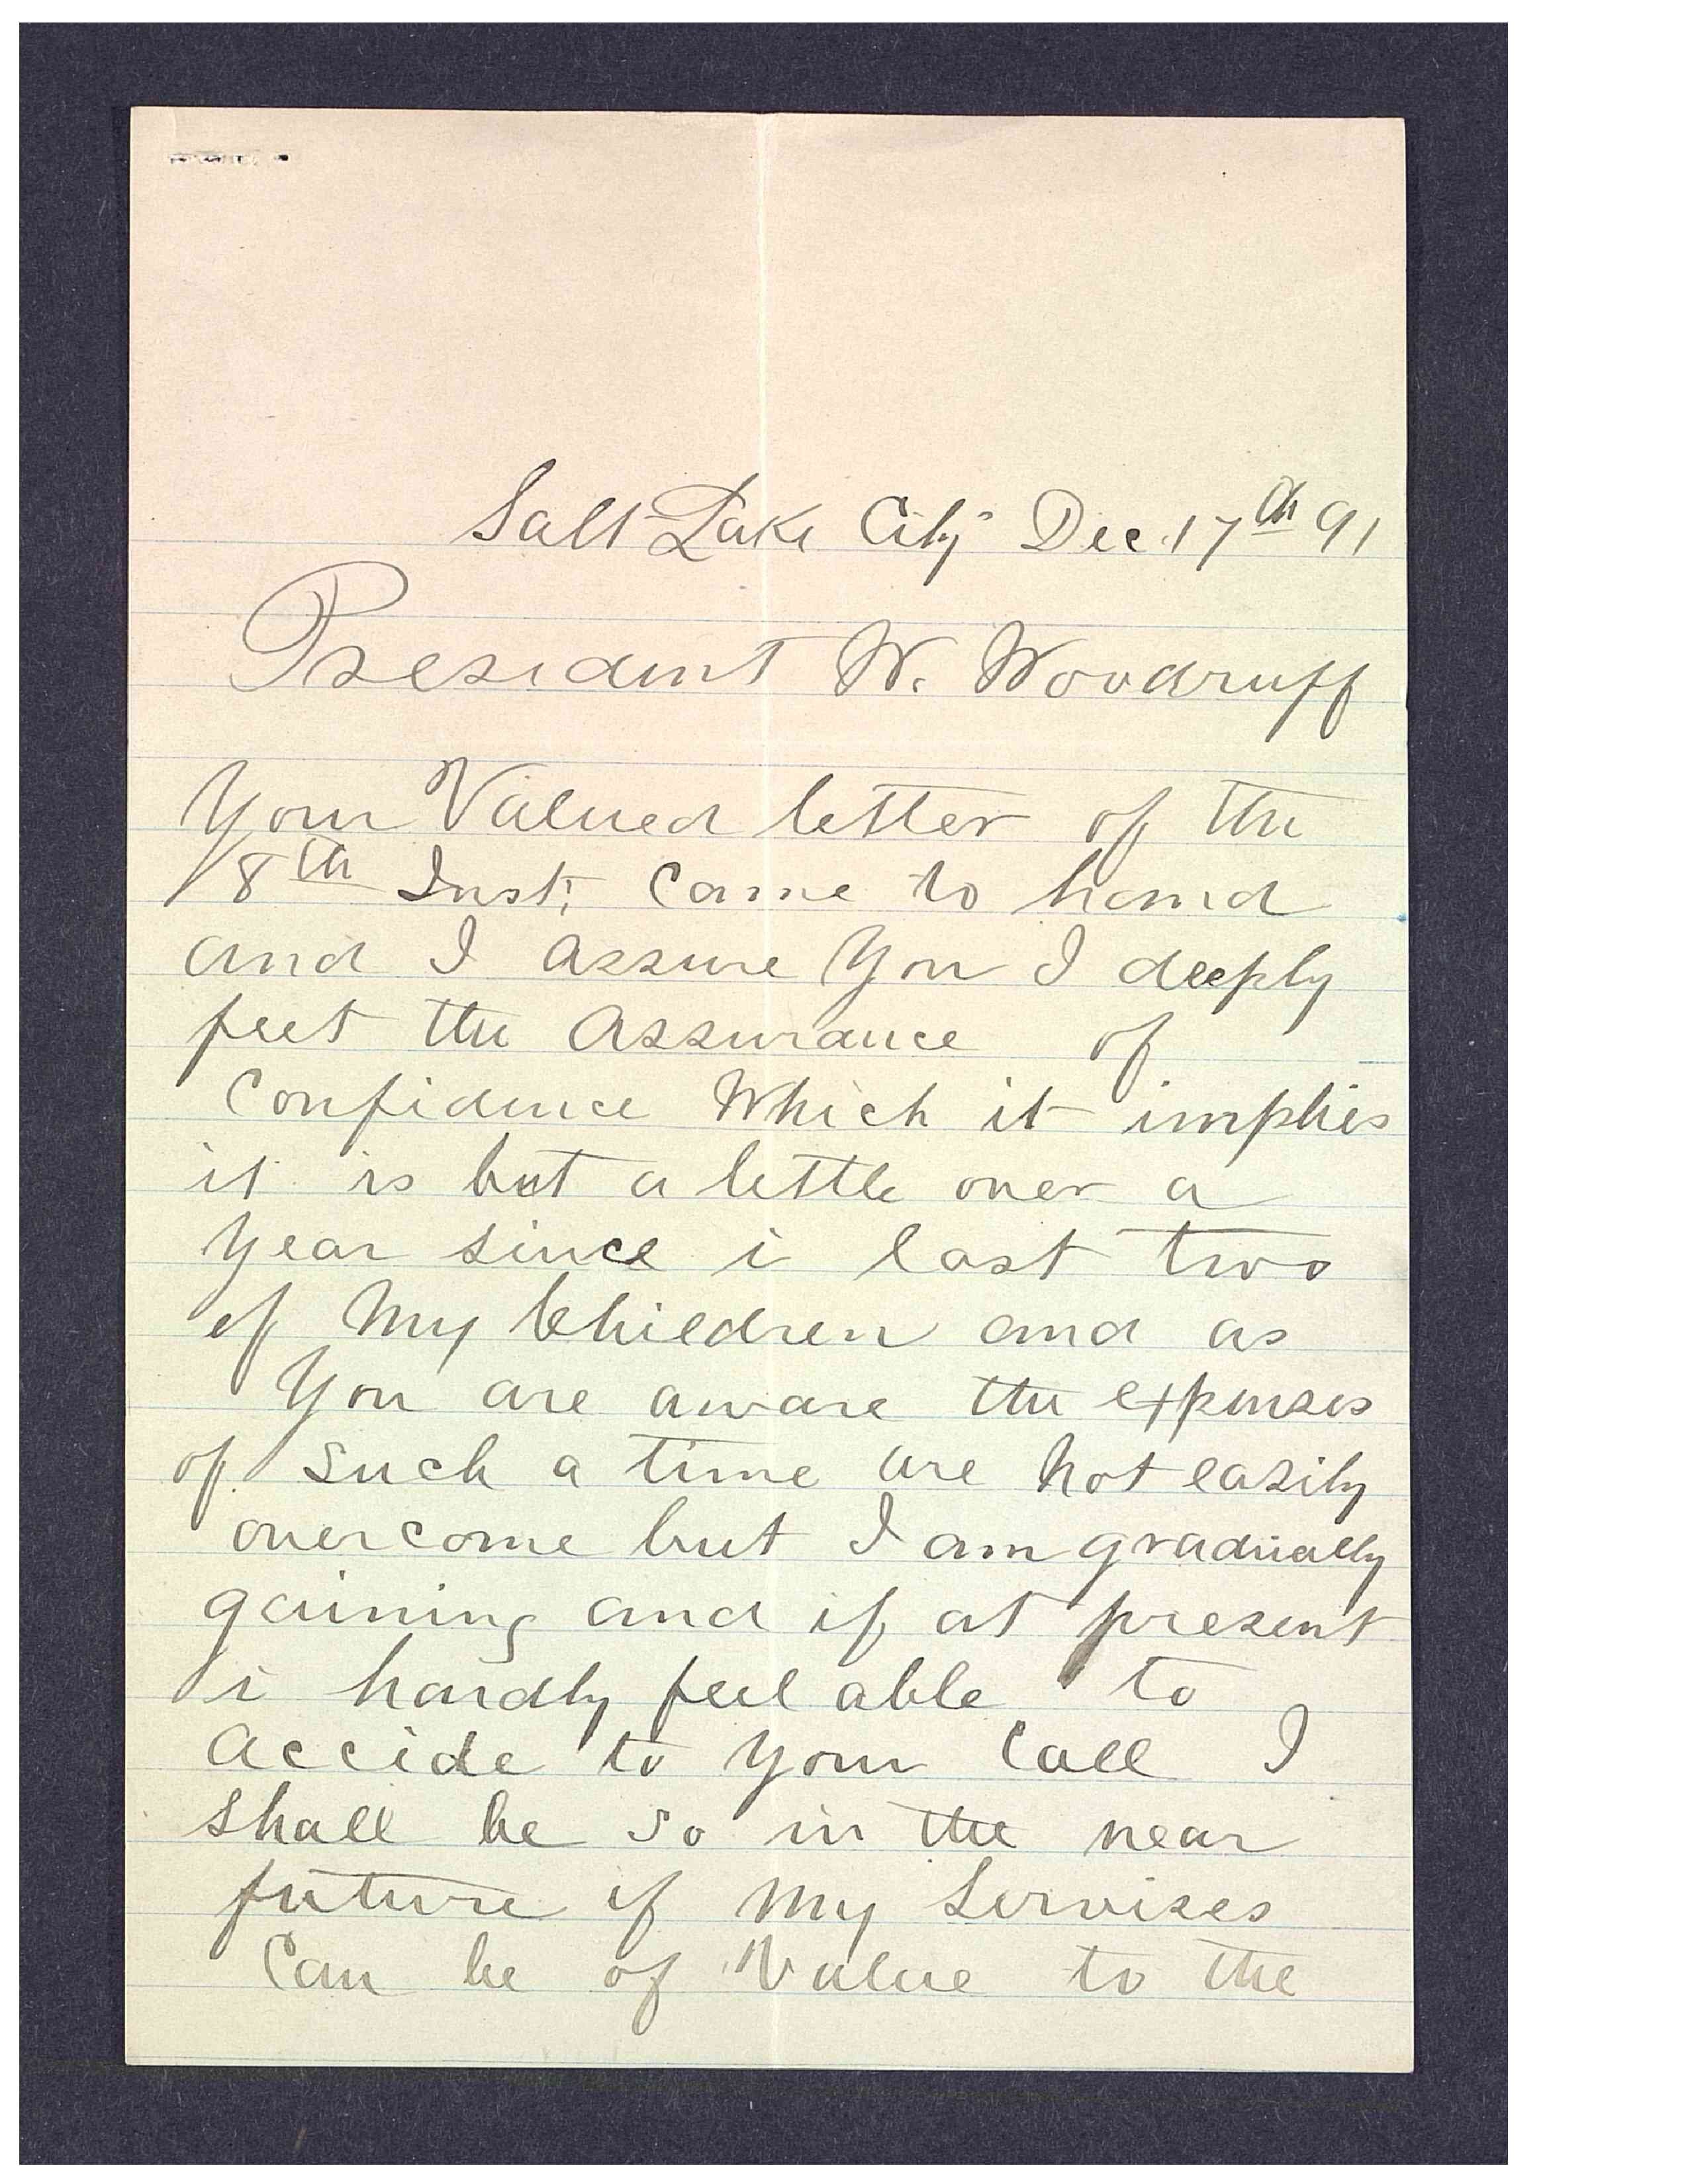 Salt Lake City Dec 17th 91
President W. Woodruff
Your Valued letter of the
8th Inst, Came to hand
and I assure You I deeply
feet the Assurance of
Confidence Which it implies
it is but a little over a
Year since i last two
of My Children and as
You are aware the expenses
of such a time are not easily
overcome but I am gradually
gaining and if at present
i hardly feel able to
accide to Your Call I
shall be so in the near
future if My Servises
Can be of Value to the